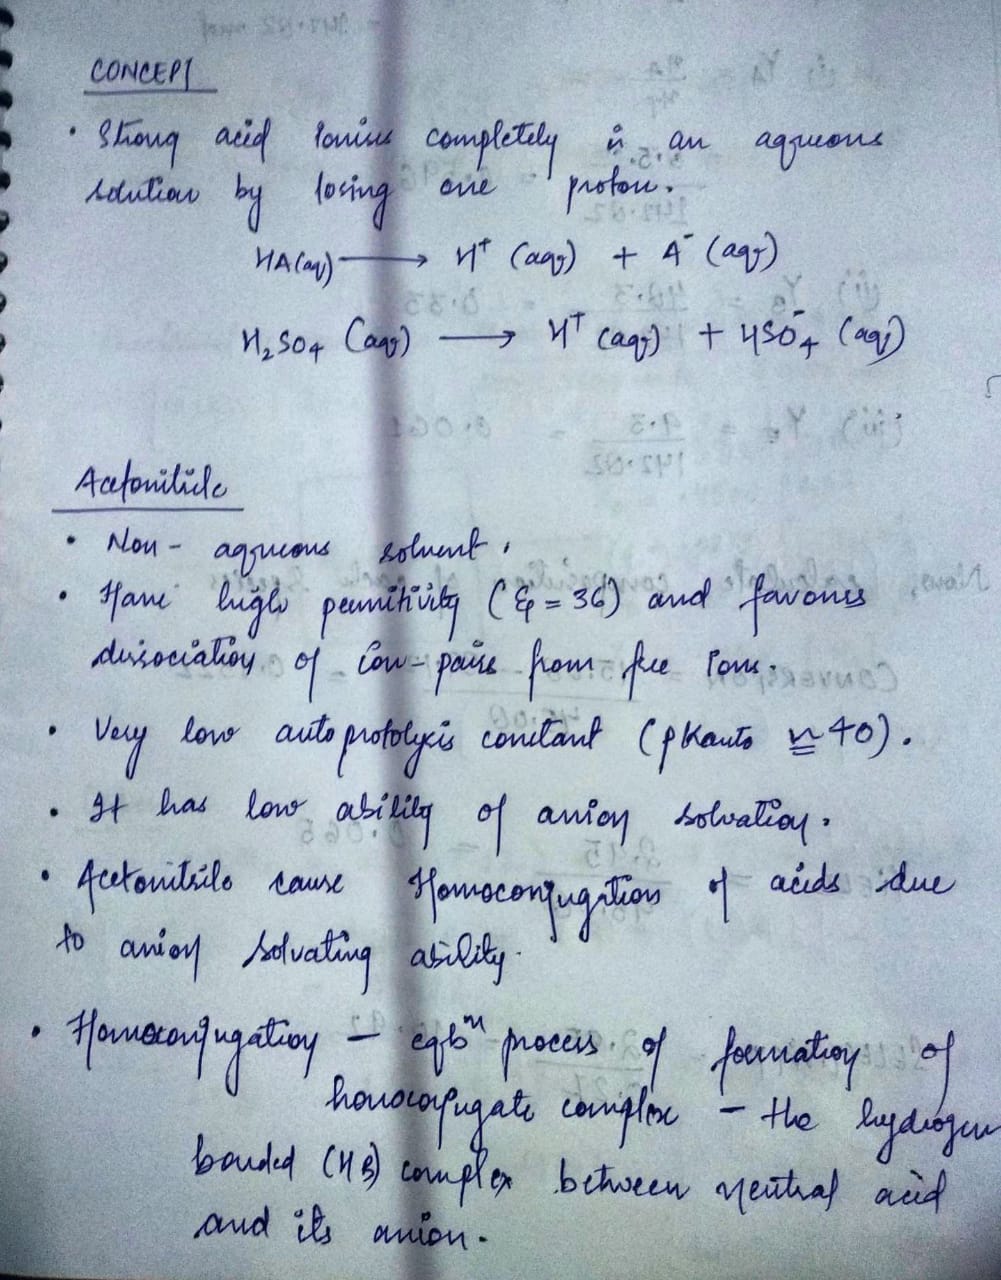 CONCEPT
• Strong acid ionises completely in an aqueous
solution by losing one proton.
HA(aq) ⟶ H⁺ (aq) + A⁻ (aq)
H₂SO₄ (aq) ⟶ H⁺ (aq) + HSO₄⁻ (aq)
Acetonitrile
• Non-aqueous solvent.
• Have high permitivity (εr = 36) and favours
dissociation of ion-pairs from free ions.
• Very low autoprotolysis constant (pKauto ≅ 40).
• It has low ability of anion solvation.
• Acetonitrile cause Homoconjugation of acids due
to anion solvating ability.
• Homoconjugation – eqbᵐ process of formation of
homoconjugate complex – the hydrogen
bonded (HB) complex between neutral acid
and its anion.